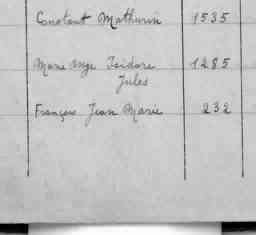 Constant Mathurin 1535
Marie Ange Isidore 1285
Jules
François Jean Marie 232